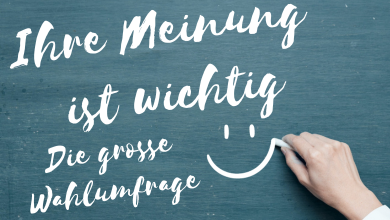 Ihre Meinung
ist wichtig
Die grosse
Wahlumfrage